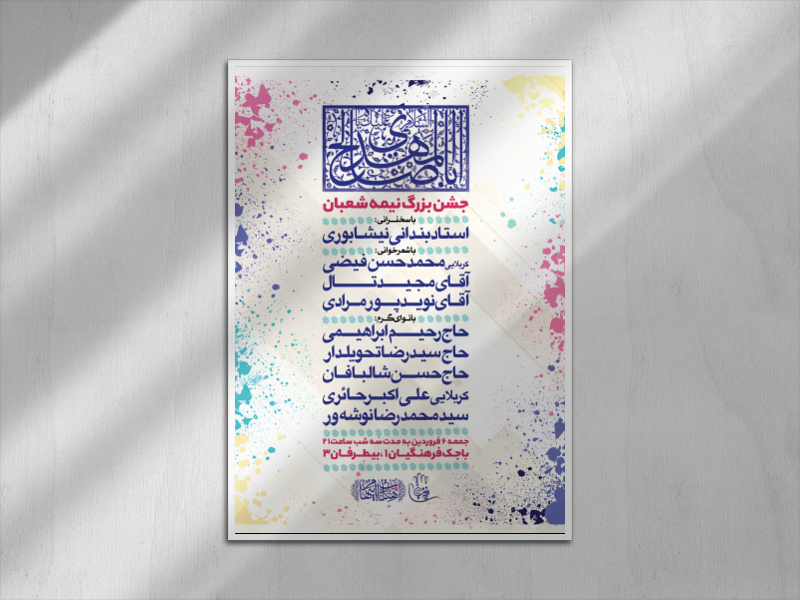 یا اباصالح المهدی
جشن بزرگ نیمه شعبان
باسخنرانی:
استاد بندانی نیشابوری
باشعرخوانی:
کربلایی محمدحسن فیضی
آقای مجید تال
آقای نوید پورمرادی
بانوای گرم:
حاج رحیم ابراهیمی
حاج سیدرضا تحویلدار
حاج حسن شالبافان
کربلایی علی اکبر حائری
سید محمدرضا نوشه ور
جمعه ۶ فروردین به مدت سه شب ساعت ۲۱
باجک فرهنگیان ۱، بیطرفان ۳